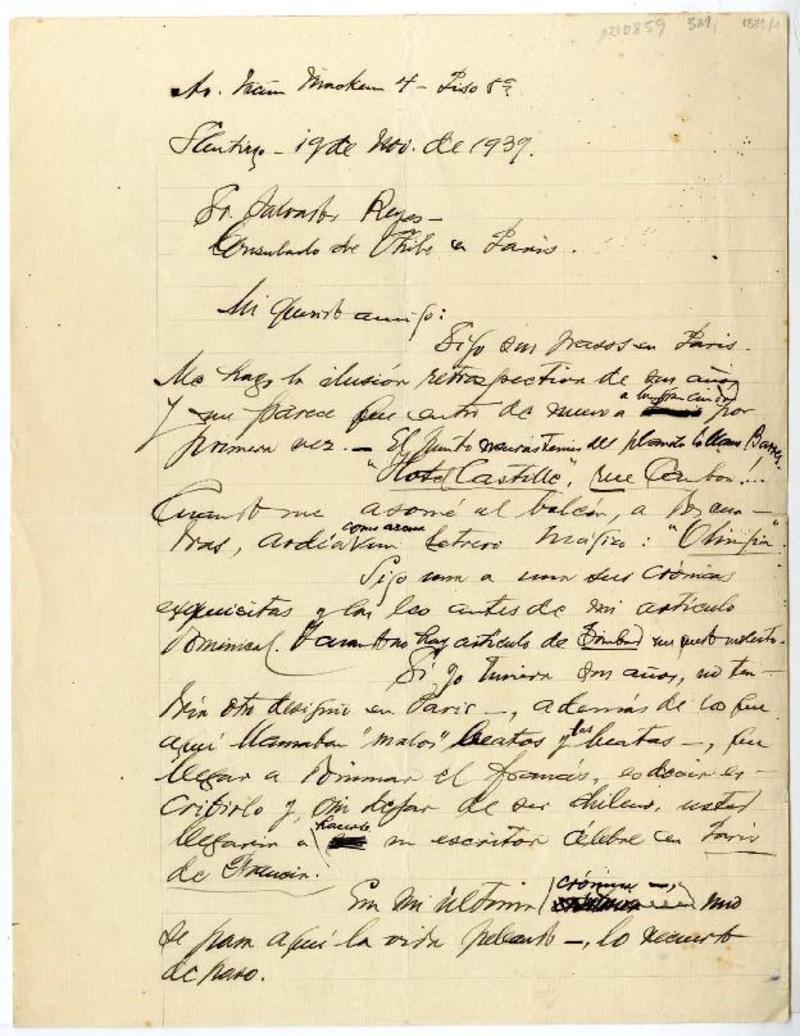 Av. Vicuña Mackenna 4 - Piso 8º
Santiago - 19 de Nov. de 1939.
Sr. Salvador Reyes -
Consulado de Chile en Paris.
Mi querido amigo:
Sigo sus pasos en Paris.
Me hago la ilusión retrospectiva de sus años
y me parece que entro de nuevo a por
primera vez. - El punto del
"Hotel Castille", rue Cambon!..
Cuando me asomé al balcón, a
ardía como letrero mágico: "Olimpia".
Sigo una a una sus crónicas
exquisitas y las leo antes de mi artículo
dominical. Y cuando no hay artículo de me molesto.
Si yo tuviera sus años, no ten-
dría otro designio en Paris -, además de lo que
aquí llamaban "malos" beatos y las beatas -, que
llegar a dominar el francés, es decir es-
cribirlo y, sin dejar de ser chileno, usted
llegaría a hacerse un escritor célebre en Paris
de Francia.
En mi última crónica -,
se pasa aquí la vida -, lo recuerdo
de paso.